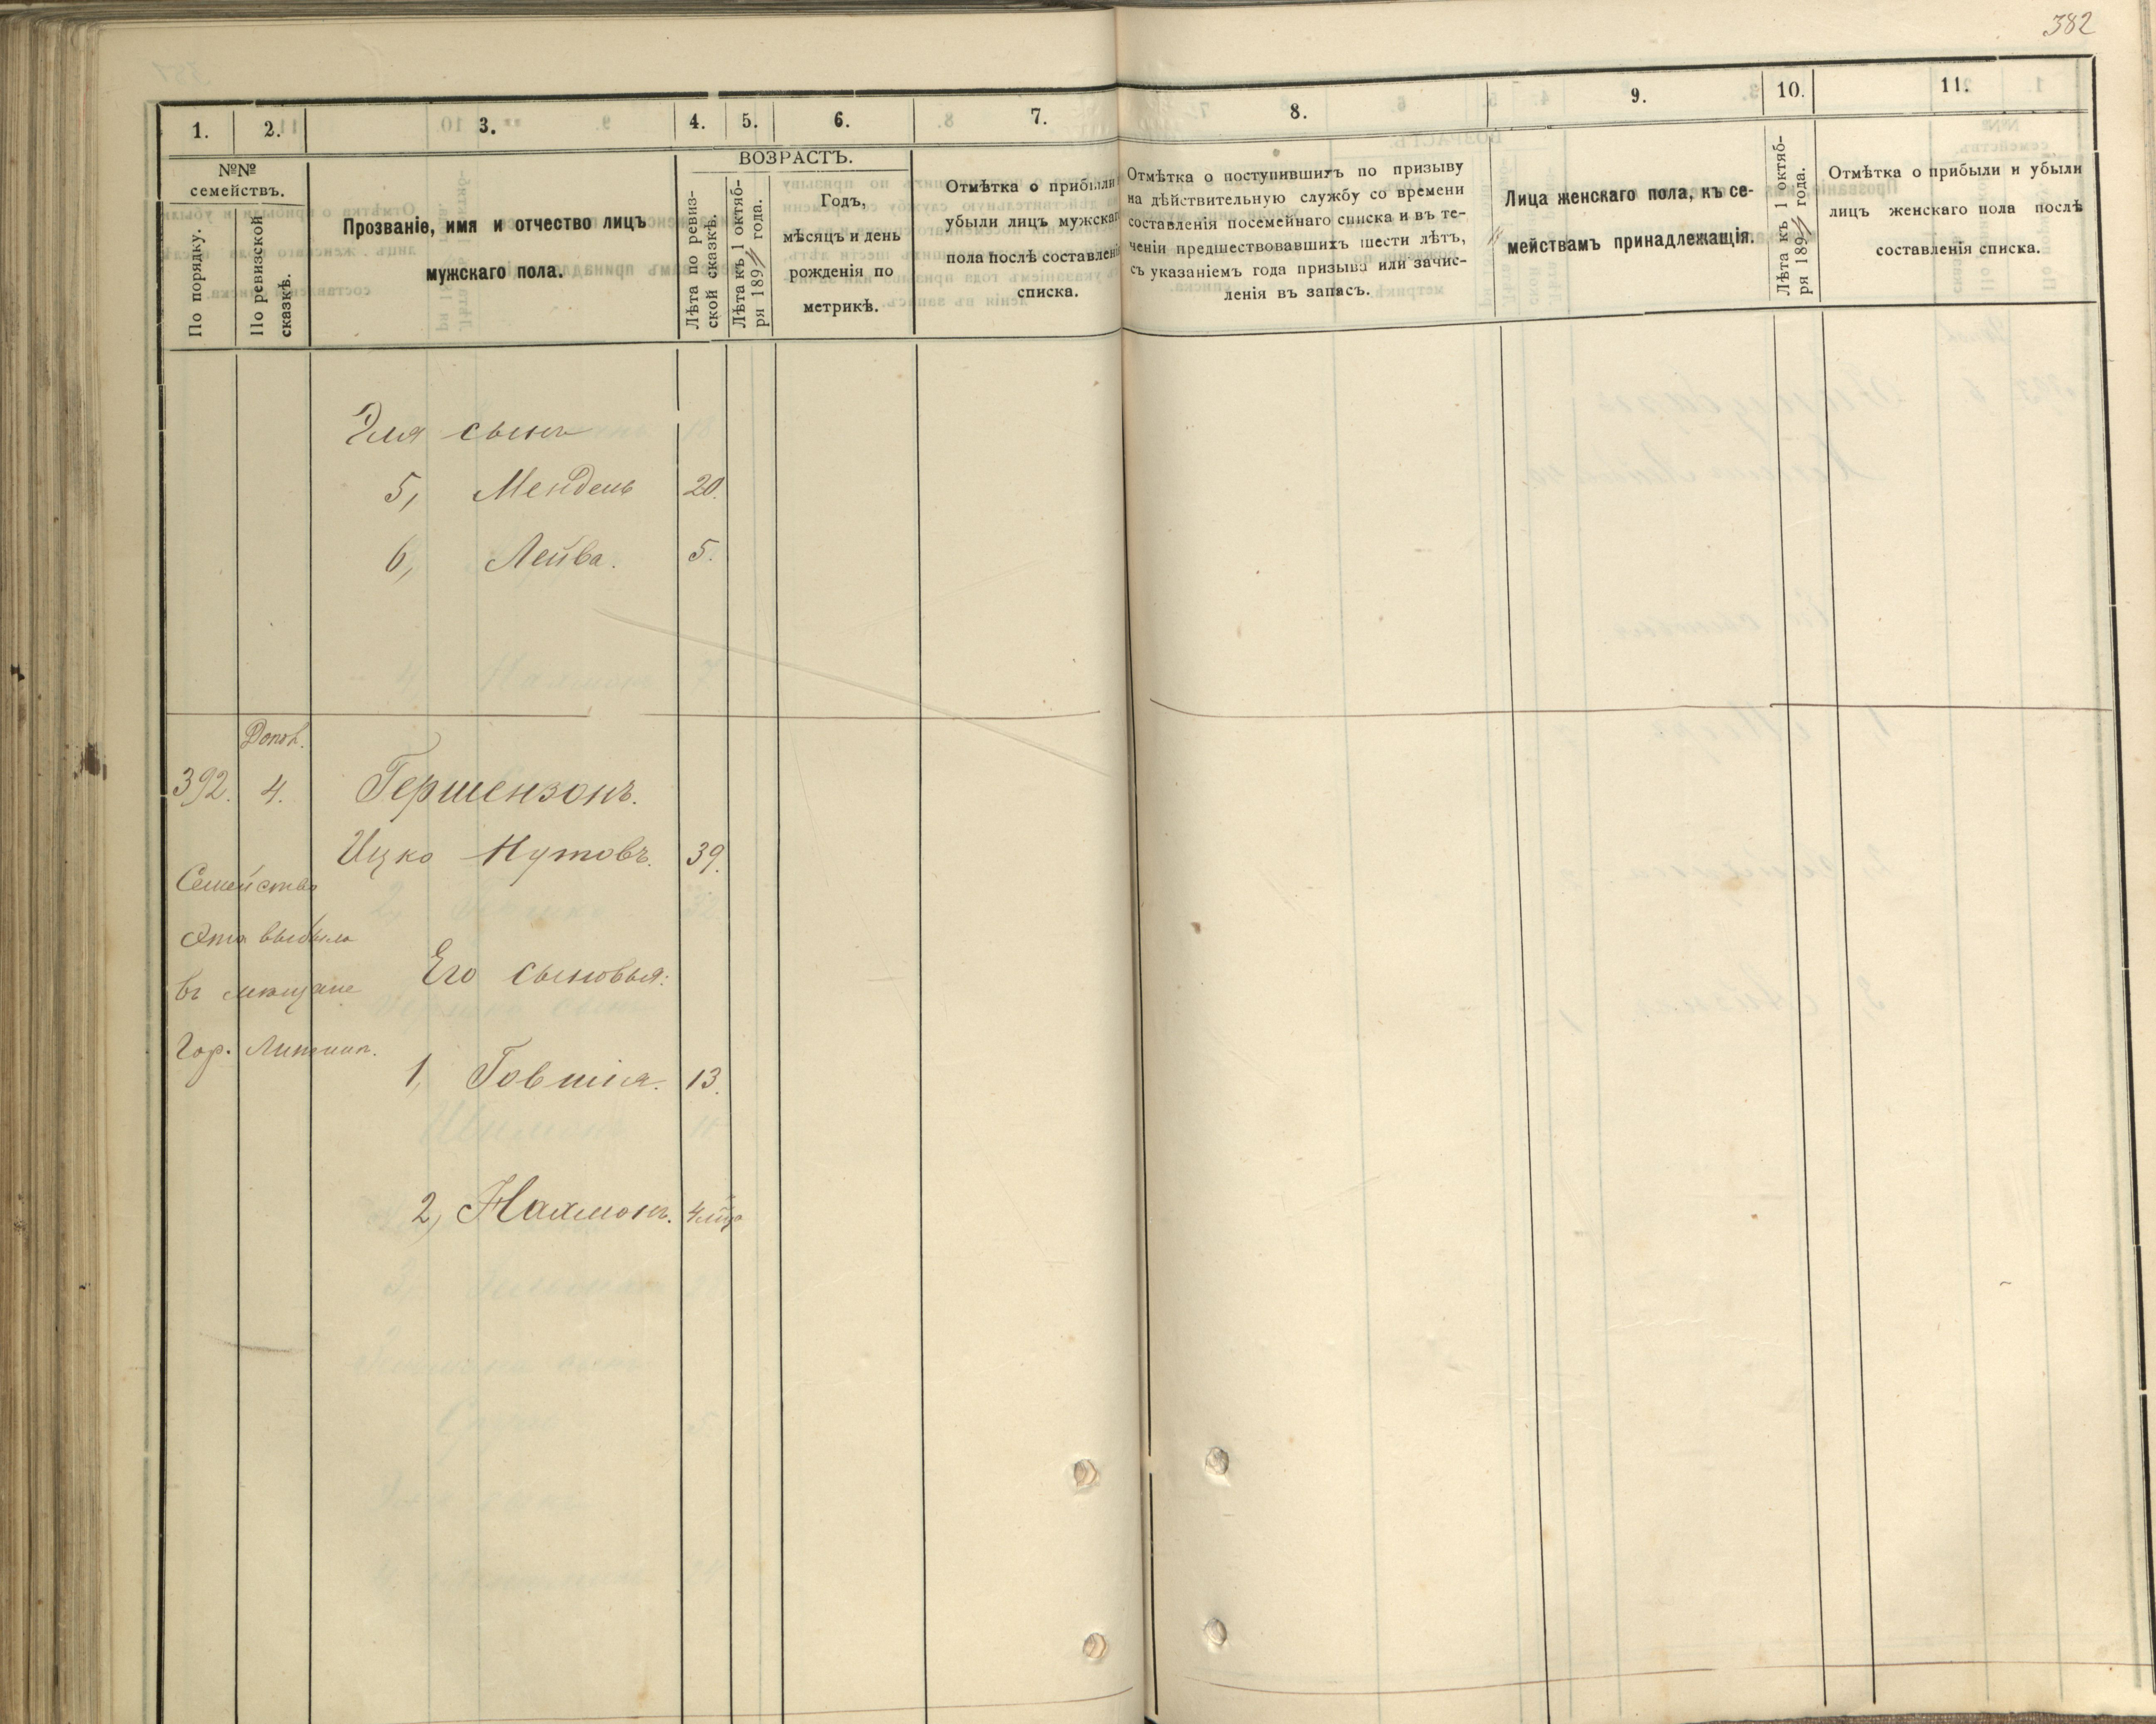 382
1. 2. 3. 4. 5. 6. 7. 8. 9. 10. 11.
№№ семействъ.
По порядку.
По ревизской сказкѣ.
Прозваніе, имя и отчество лицъ
мужскаго пола.
ВОЗРАСТЪ.
Лѣта по ревиз-
ской сказкѣ.
Лѣта къ 1 октяб-
ря 189 года.
Годъ,
мѣсяцъ и день
рожденія по
метрикѣ.
Отмѣтка о прибыли
убыли лицъ мужскаг
пола послѣ составлені
списка.
Отмѣтка о поступившихъ по призыву
на дѣйствительную службу со времени
составленія посемейнаго списка и въ те-
ченіи предшествовавшихъ шести лѣтъ,
съ указаніемъ года призыва или зачис-
ленія въ запасъ.
Лица женскаго пола, къ се-
мействамъ принадлежащія.
Лѣта къ 1 октяб-
ря 189 года.
Отмѣтка о прибыли и убыли
лицъ женскаго пола послѣ
составленія списка.
Эля сынъ
5, Мендель 20.
6, Лейва. 5.
Допол.
392. 4. Гершензонъ.
Ицко Нутовъ. 39.
Семейство
Это выбыло
въ мѣщане
Гор. Литина.
Его сыновья:
1, Товшія. 13.
2, Нахмонъ. 4